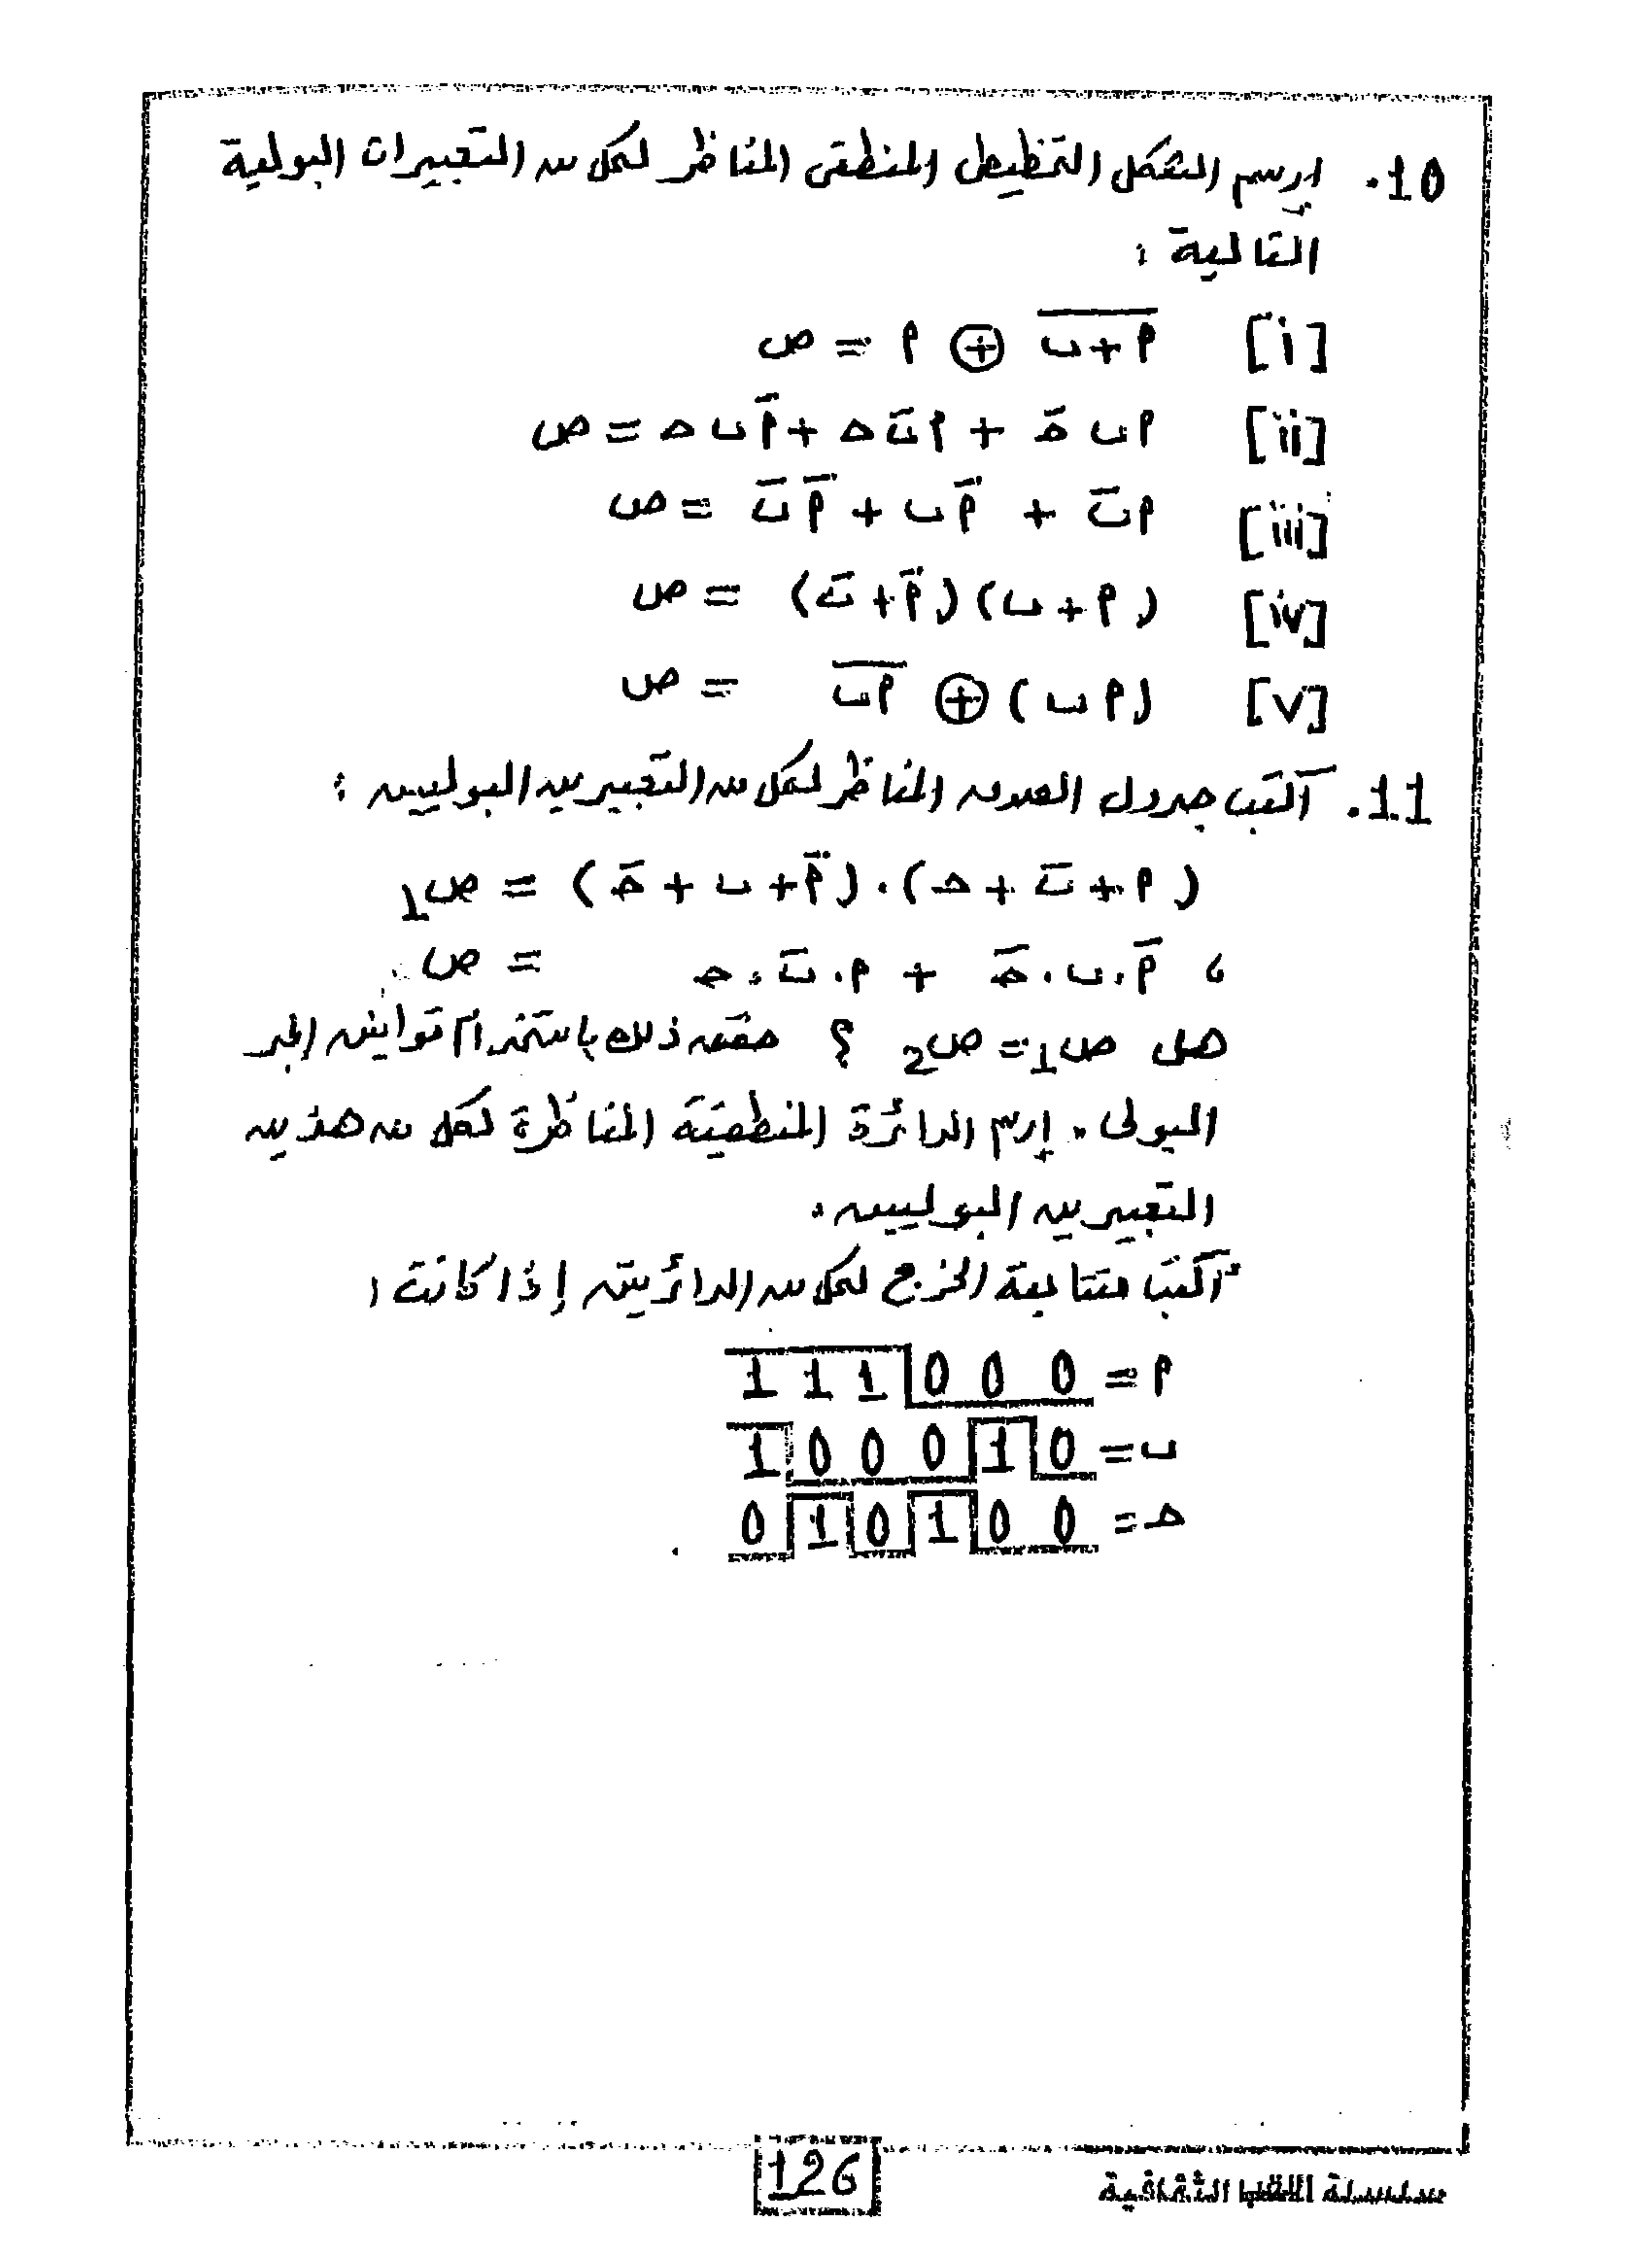 10. ارسم الشكل التخطيطى المنطقى المناظر لكل من التعبيرات البولية
التالية :
[i] \overline{أ+ب} ⊕ أ = ص
[ii] أ ب \overline{حـ} + أ \overline{ب} حـ + \overline{أ} ب حـ = ص
[iii] أ \overline{ب} + \overline{أ} ب + \overline{أ} \overline{ب} = ص
[iv] (أ + ب)(\overline{أ} + \overline{ب}) = ص
[v] (أ ب) ⊕ \overline{أ ب} = ص
11. أكتب جدول الصدق المناظر لكل من التعبيرين البوليين :
(أ + \overline{ب} + حـ).(\overline{أ} + ب + \overline{حـ}) = ص1
، \overline{أ}.ب.\overline{حـ} + أ.\overline{ب}.حـ = ص
هل ص1 = ص2 ؟ حقق ذلك باستخدام قوانين الجبر
البولى . إرسم الدائرة المنطقية المناظرة لكل من هذين
التعبيرين البوليين .
أكتب متتابعة الخرج لكل من الدائرتين إذا كانت :
أ = 0 0 0 1 1 1
ب = 0 1 0 0 0 1
حـ = 0 0 1 0 1 0
126
سلسلة الثقافية